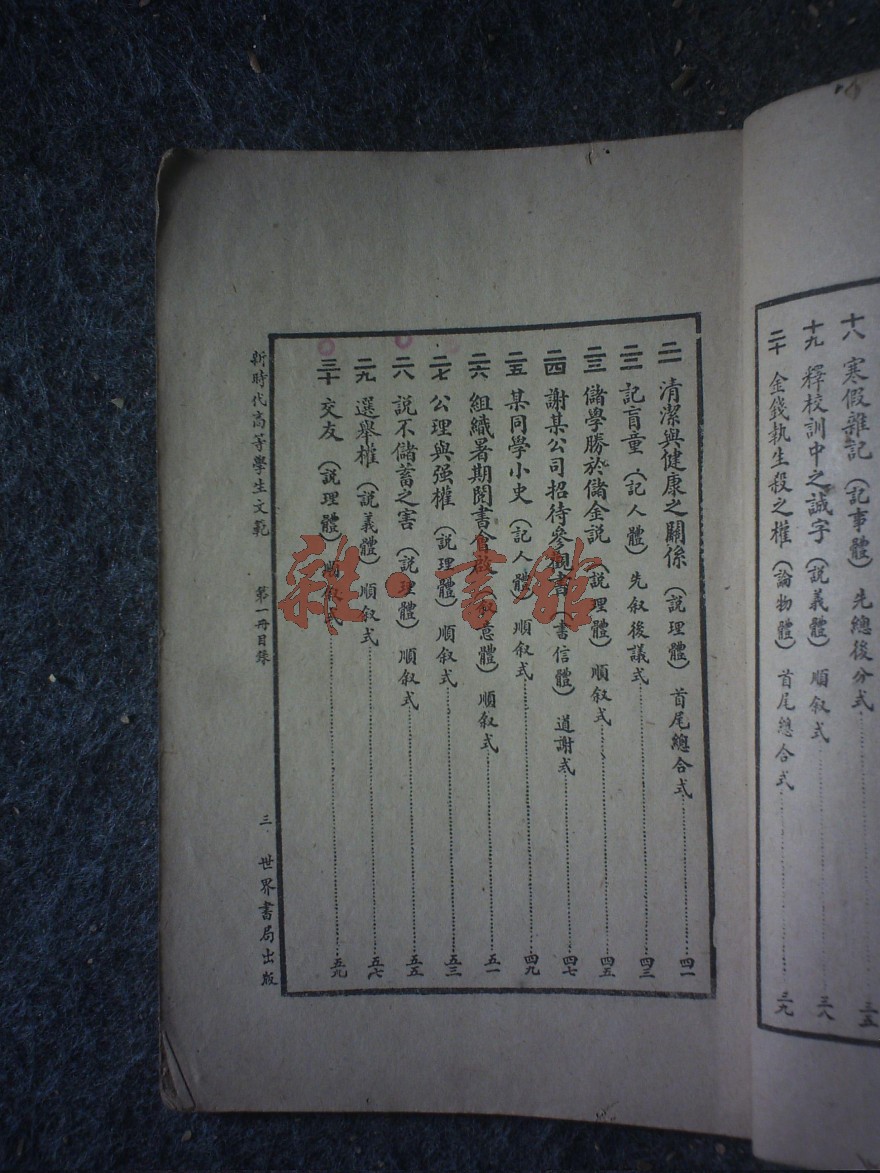 十八 寒假雜記（記事體）先總後分式 三五
十九 釋校訓中之誠字（說義體）順叙式 三八
二十 金錢執生殺之權（論物體）首尾總合式 三九
二一 清潔與健康之關係（說理體）首尾總合式 四一
二二 記盲童（記人體）先叙後議式 四三
二三 儲學勝於儲金說（說理體）順叙式 四五
二四 謝某公司招待參觀書（書信體）道謝式 四七
二五 某同學小史（記人體）順叙式 四九
二六 組織暑期閱書會啟（叙意體）順叙式 五一
二七 公理與强權（說理體）順叙式 五三
二八 說不儲蓄之害（說理體）順叙式 五五
二九 選舉權（說義體）順叙式 五七
三十 交友（說理體）順叙式 五九
新時代高等學生文範 第一冊目錄 三 世界書局出版
雜·書館